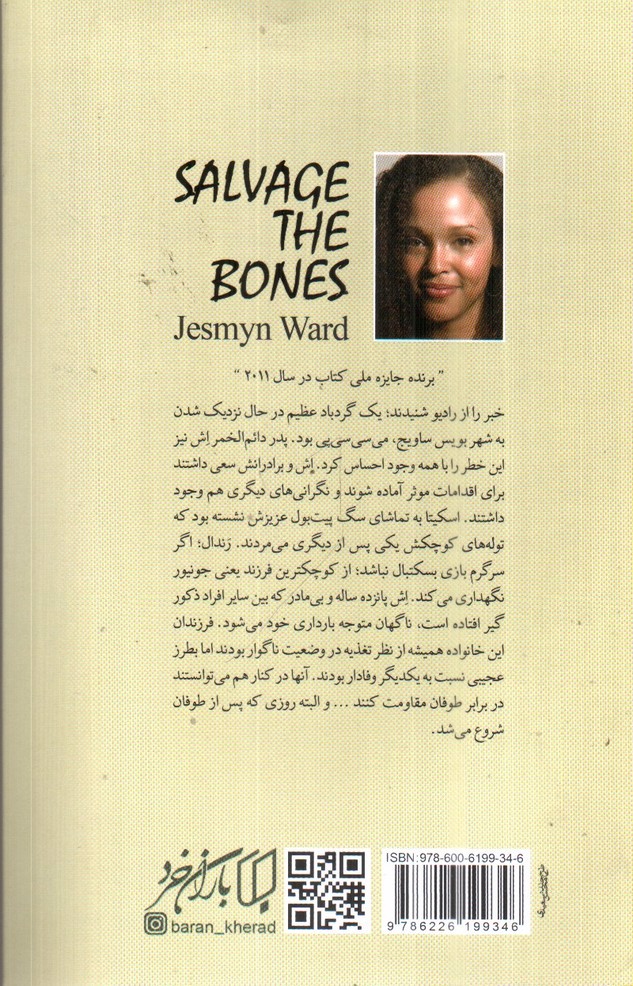 SALVAGE
THE
BONES
Jesmyn Ward
" برنده جایزه ملی کتاب در سال ۲۰۱۱ "
خبر را از رادیو شنیدند؛ یک گردباد عظیم در حال نزدیک شدن
به شهر بویس ساویج، می‌سی‌سی‌پی بود. پدر دائم‌الخمر اِش نیز
این خطر را با همه وجود احساس کرد. اِش و برادرانش سعی داشتند
برای اقدامات موثر آماده شوند و نگرانی‌های دیگری هم وجود
داشتند. اسکیتا به تماشای سگ پیت‌بول عزیزش نشسته بود که
توله‌های کوچکش یکی پس از دیگری می‌مردند. رَندال؛ اگر
سرگرم بازی بسکتبال نباشد؛ از کوچکترین فرزند یعنی جونیور
نگهداری می‌کند. اِش پانزده ساله و بی‌مادر که بین سایر افراد ذکور
گیر افتاده است، ناگهان متوجه بارداری خود می‌شود. فرزندان
این خانواده همیشه از نظر تغذیه در وضعیت ناگوار بودند اما بطرز
عجیبی نسبت به یکدیگر وفادار بودند. آنها در کنار هم می‌توانستند
در برابر طوفان مقاومت کنند ... و البته روزی که پس از طوفان
شروع می‌شد.
باران خرد
baran_kherad
ISBN:978-600-6199-34-6
9 786226 199346